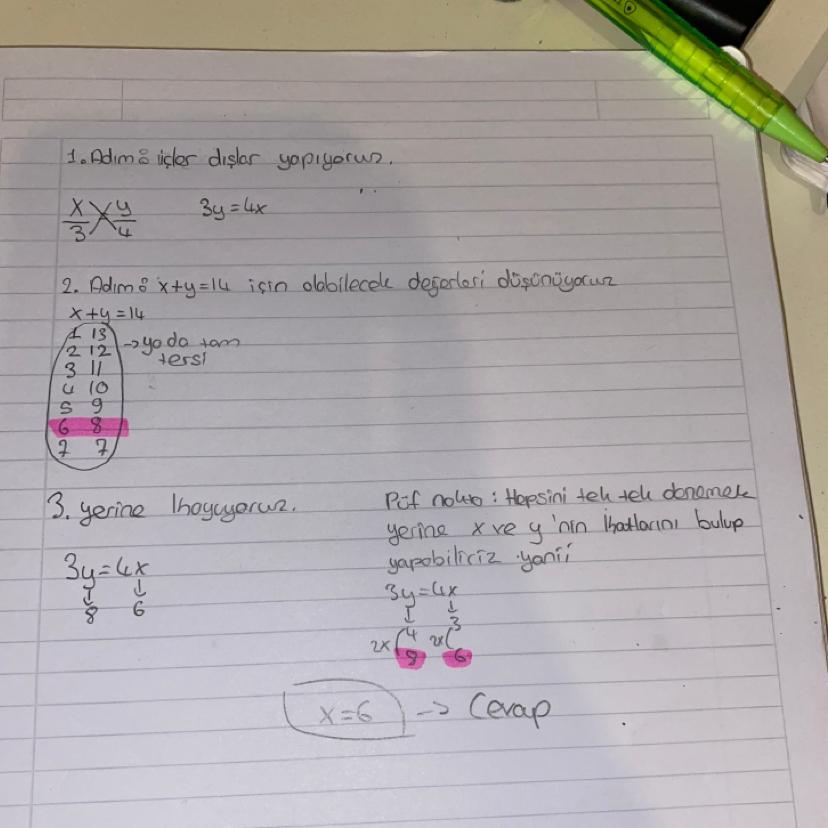 1. Adım: içler dışlar yapıyoruz.
x/3 y/4 3y=4x
2. Adım: x+y=14 için olabilecek değerleri düşünüyoruz
x+y=14
1 13
2 12 → ya da tam
tersi
3 11
4 10
5 9
6 8
7 7
3. yerine koyuyoruz.
3y=4x
↓ ↓
8 6
Püf nokta: Hepsini tek tek denemek
yerine x ve y'nin katlarını bulup
yapabiliriz yani
3y=4x
↓ ↓
4 3
2x 2x
8 6
x=6 → Cevap